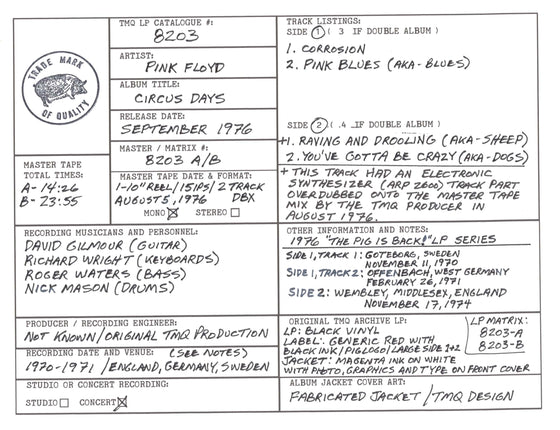 TRADE MARK
OF QUALITY
TMQ LP CATALOGUE #:
8203
ARTIST:
PINK FLOYD
ALBUM TITLE:
CIRCUS DAYS
RELEASE DATE:
SEPTEMBER 1976
MASTER / MATRIX #:
8203 A/B
MASTER TAPE
TOTAL TIMES:
A- 14:26
B- 23:55
MASTER TAPE DATE & FORMAT:
1-10" REEL/15IPS/2 TRACK
AUGUST 5, 1976 DBX
MONO STEREO
RECORDING MUSICIANS AND PERSONNEL:
DAVID GILMOUR (GUITAR)
RICHARD WRIGHT (KEYBOARDS)
ROGER WATERS (BASS)
NICK MASON (DRUMS)
PRODUCER / RECORDING ENGINEER:
NOT KNOWN/ORIGINAL TMQ PRODUCTION
RECORDING DATE AND VENUE: (SEE NOTES)
1970-1971 / ENGLAND, GERMANY, SWEDEN
STUDIO OR CONCERT RECORDING:
STUDIO CONCERT
TRACK LISTINGS:
SIDE 1 ( 3 IF DOUBLE ALBUM )
1. CORROSION
2. PINK BLUES (AKA-BLUES)
SIDE 2 ( .4 IF DOUBLE ALBUM )
+1. RAVING AND DROOLING (AKA-SHEEP)
2. YOU'VE GOTTA BE CRAZY (AKA-DOGS)
+ THIS TRACK HAD AN ELECTRONIC
SYNTHESIZER (ARP 2600) TRACK PART
OVERDUBBED ONTO THE MASTER TAPE
MIX BY THE TMQ PRODUCER IN
AUGUST 1976.
OTHER INFORMATION AND NOTES:
1976 "THE PIG IS BACK!" LP SERIES
SIDE 1, TRACK 1: GOTEBORG, SWEDEN
NOVEMBER 11, 1970
SIDE 1, TRACK 2: OFFENBACH, WEST GERMANY
FEBRUARY 26, 1971
SIDE 2: WEMBLEY, MIDDLESEX, ENGLAND
NOVEMBER 17, 1974
ORIGINAL TMQ ARCHIVE LP:
LP: BLACK VINYL
LABEL: GENERIC RED WITH
BLACK INK/PIG LOGO/LARGE SIDE 1+2
JACKET: MAGENTA INK ON WHITE
WITH PHOTO, GRAPHICS AND TYPE ON FRONT COVER
LP MATRIX:
8203-A
8203-B
ALBUM JACKET COVER ART:
FABRICATED JACKET / TMQ DESIGN